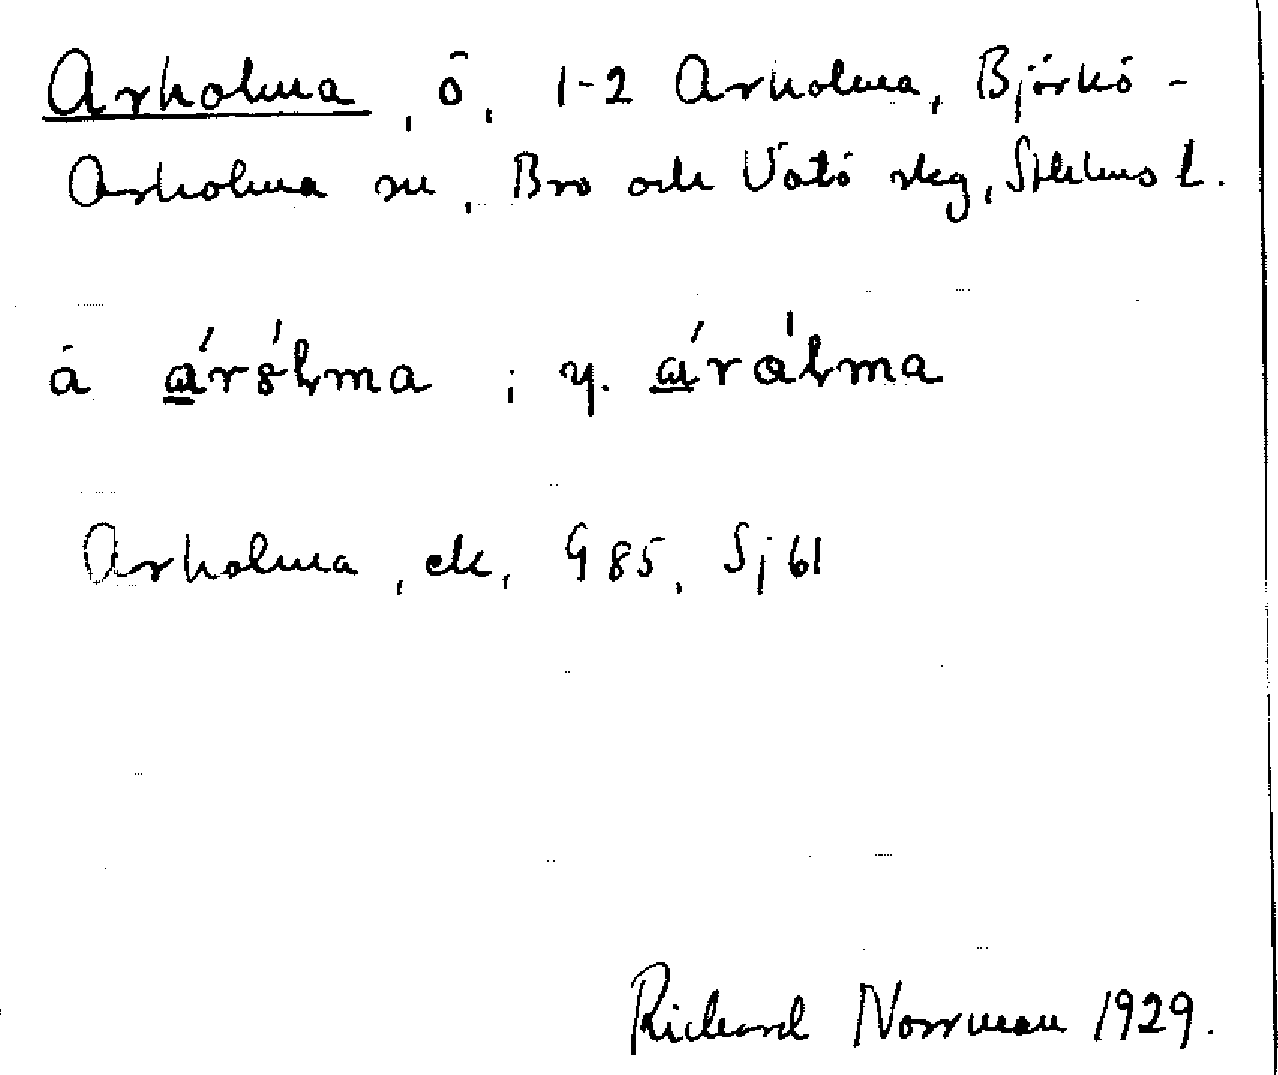 Arholma, ö, 1-2 Arholma, Björkö-
Arholma sn, Bro och Vätö skg, Sthlms l.
å árålma; y. árálma
Arholma, ek, G 85, Sj 61
Richard Norrman 1929.